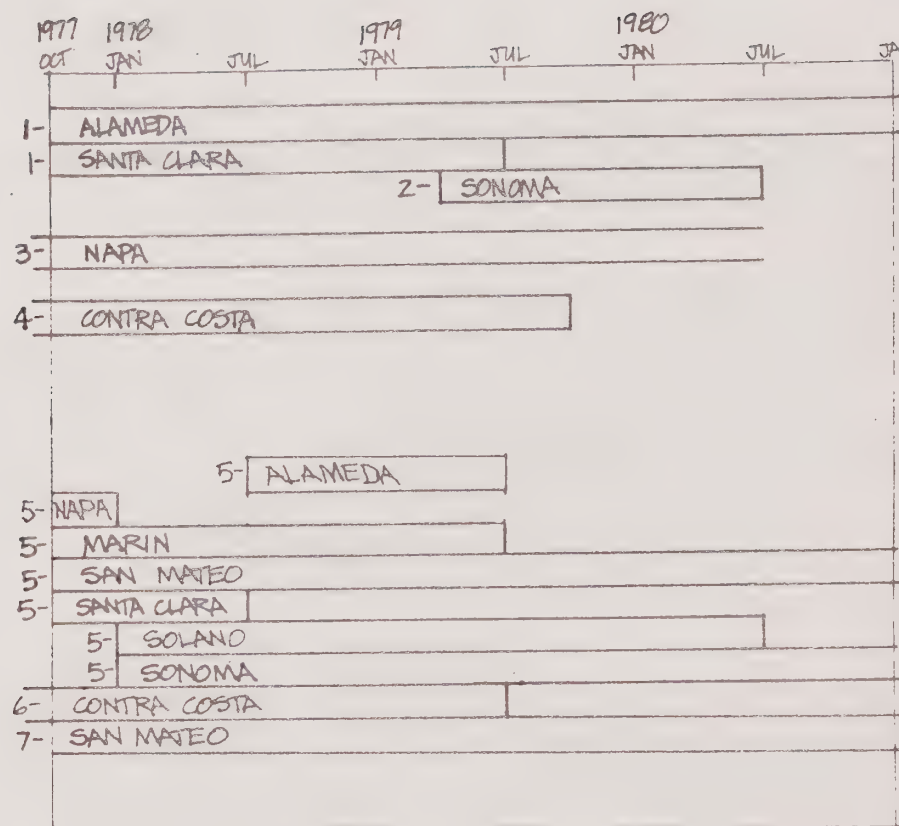 1977 1978 1979 1980
OCT JAN JUL JAN JUL JAN JUL JA
1- ALAMEDA
1- SANTA CLARA
2- SONOMA
3- NAPA
4- CONTRA COSTA
5- ALAMEDA
5- NAPA
5- MARIN
5- SAN MATEO
5- SANTA CLARA
5- SOLANO
5- SONOMA
6- CONTRA COSTA
7- SAN MATEO